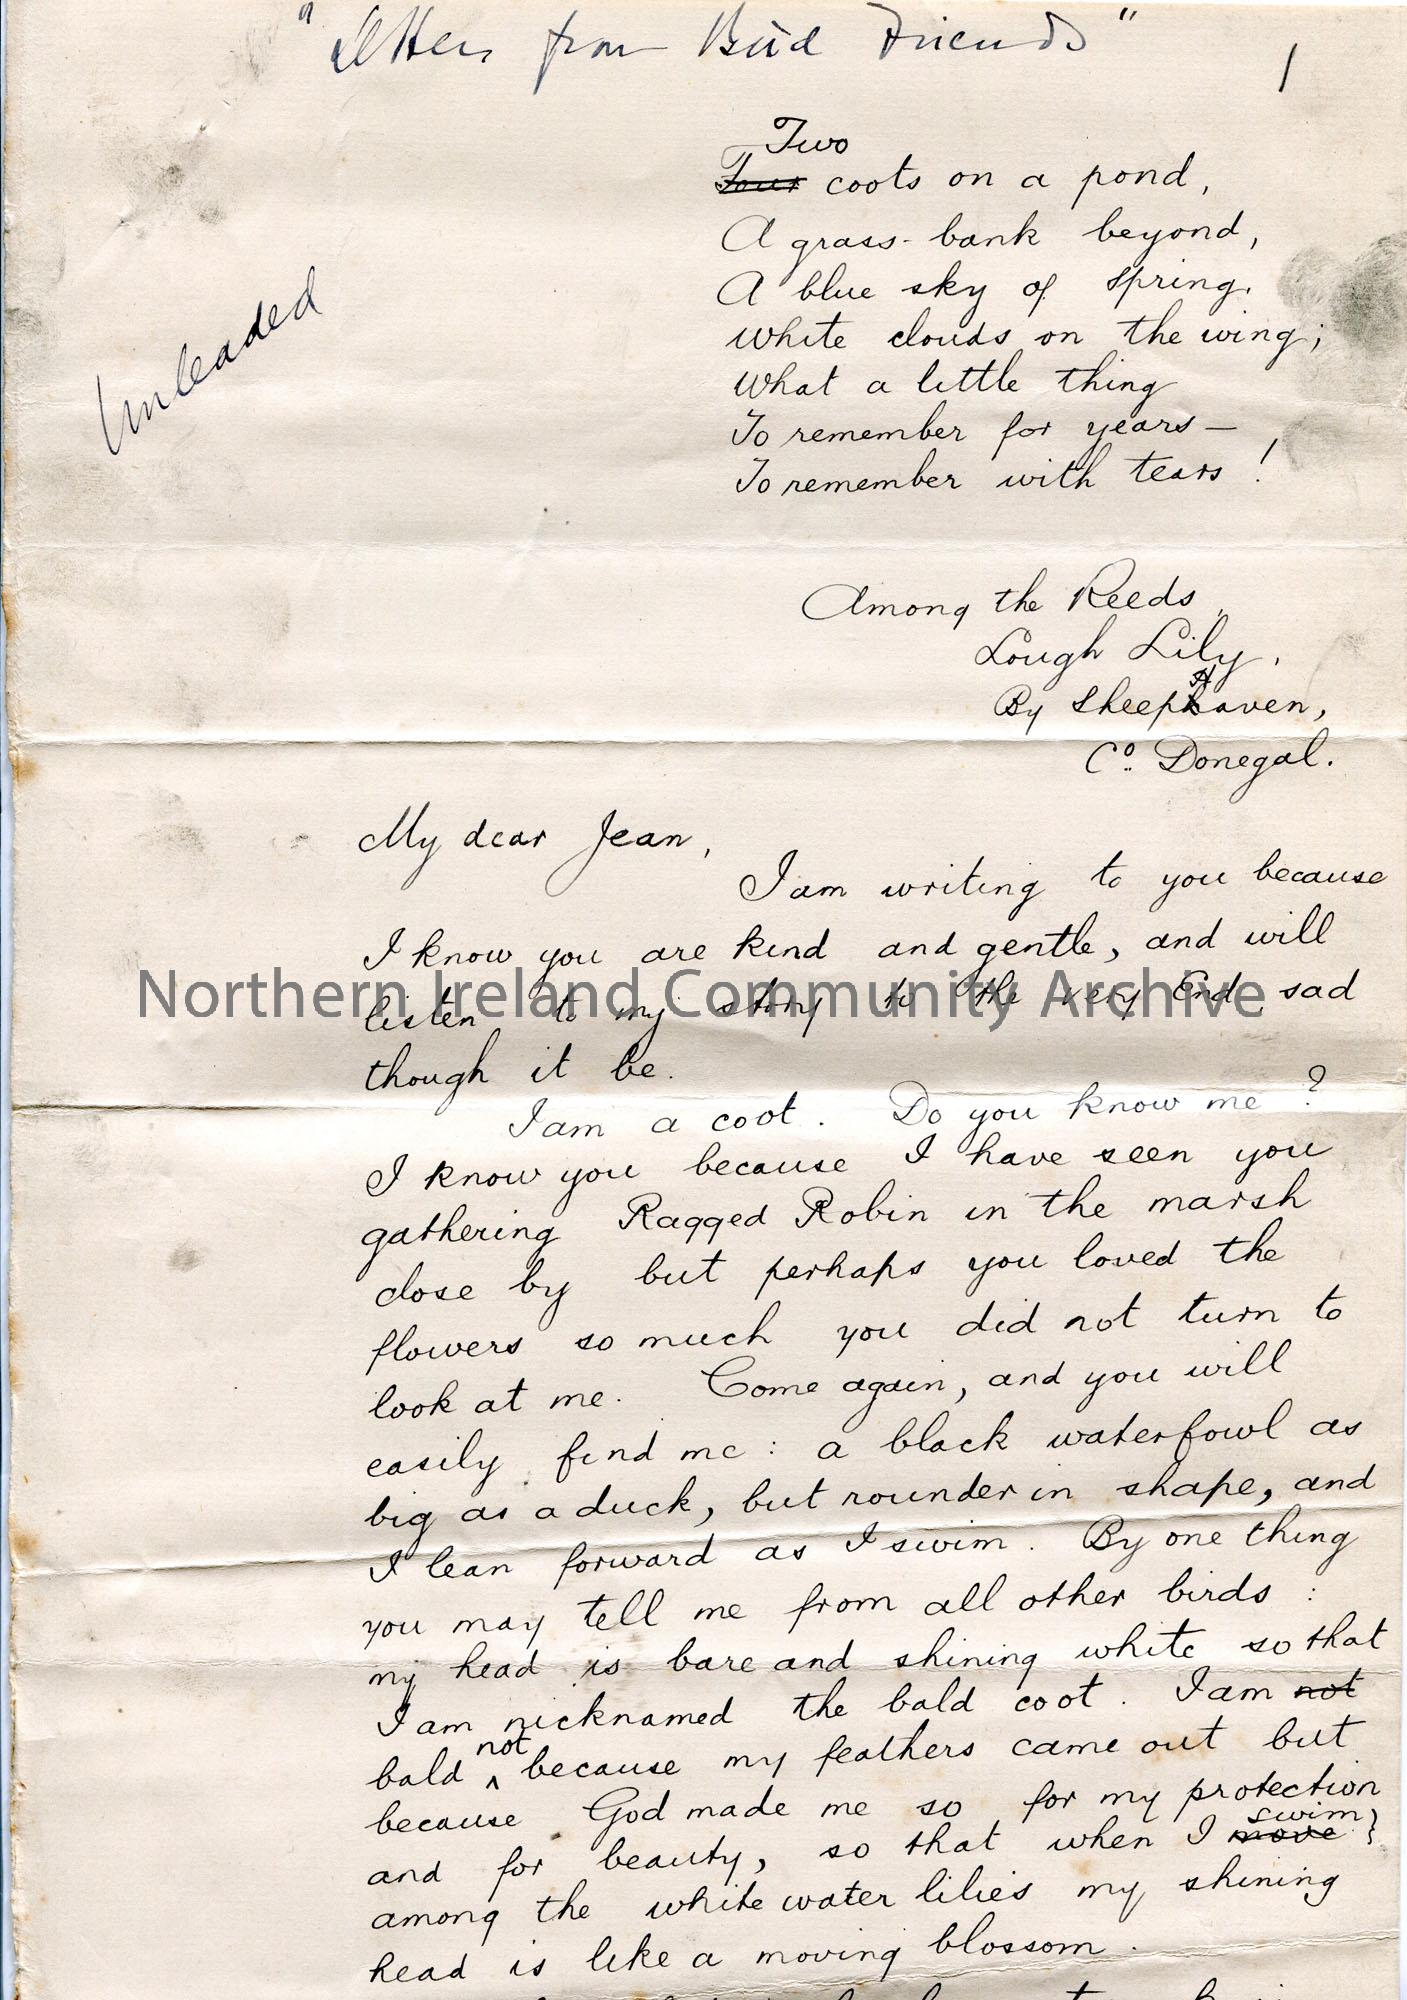 "Letters from Bird Friends"
1
Unleaded
Two
Four coots on a pond,
A grass-bank beyond,
A blue sky of spring,
White clouds on the wing;
What a little thing
To remember for years—
To remember with tears!
Among the Reeds,
Lough Lily,
By SheepHaven,
Co. Donegal.
My dear Jean,
I am writing to you because
I know you are kind and gentle, and will
listen to my story to the very End, sad
though it be.
I am a coot. Do you know me?
I know you because I have seen you
gathering Ragged Robin in the marsh
close by but perhaps you loved the
flowers so much you did not turn to
look at me. Come again, and you will
easily find me: a black waterfowl as
big as a duck, but rounder in shape, and
I lean forward as I swim. By one thing
you may tell me from all other birds:
my head is bare and shining white so that
I am nicknamed the bald coot. I am not
bald not because my feathers came out but
because God made me so for my protection
and for beauty, so that when I move swim
among the white water lilies my shining
head is like a moving blossom.
Northern Ireland Community Archive